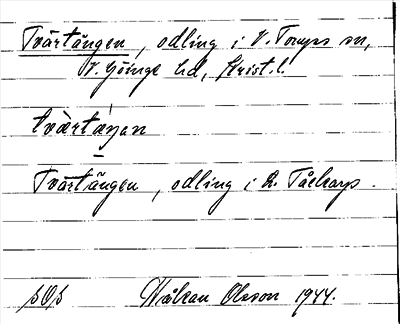 Tvärtängen, odling i V. Torups sn,
V. Göinge hd, Krist. l.
tværtæŋan
Tvärtängen, odling i L. Tårkarp.
SOS Håkan Olsson 1944.